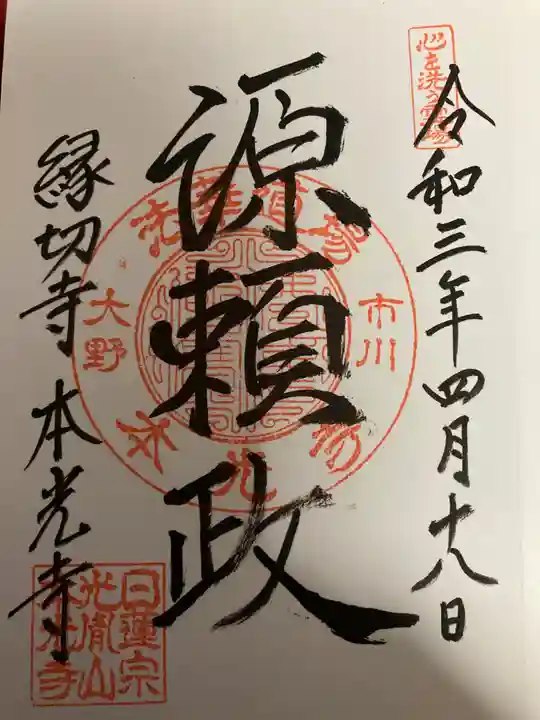 心を洗う霊場
令和三年四月十八日
源頼政
法華道場
市川
大野
本光寺
縁切寺 本光寺
日蓮宗
光胤山
本光寺